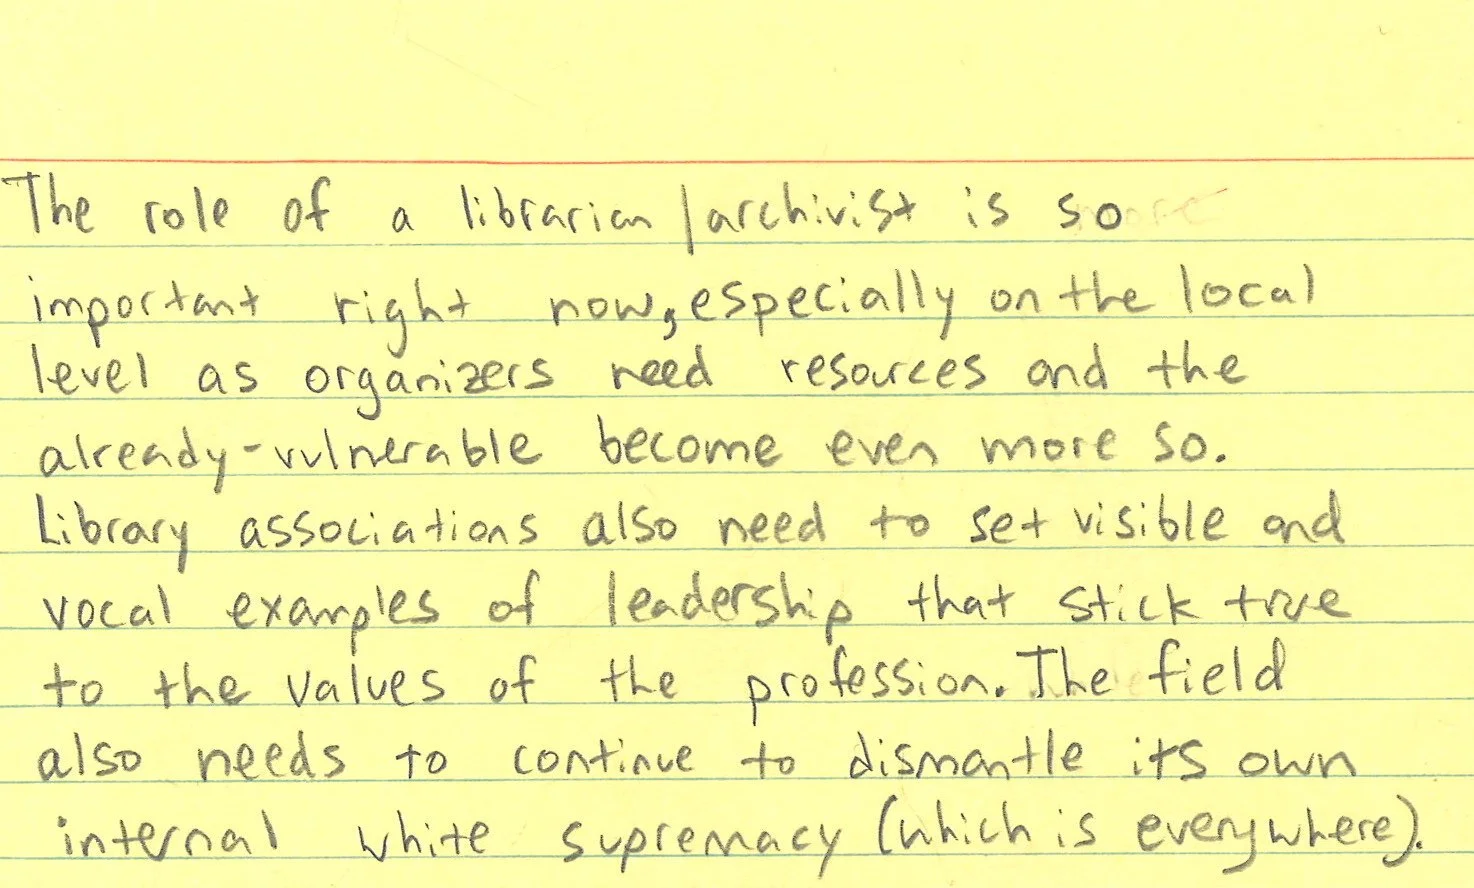 The role of a librarian/archivist is so
important right now, especially on the local
level as organizers need resources and the
already-vulnerable become even more so.
Library associations also need to set visible and
vocal examples of leadership that stick true
to the values of the profession. The field
also needs to continue to dismantle its own
internal white supremacy (which is everywhere).